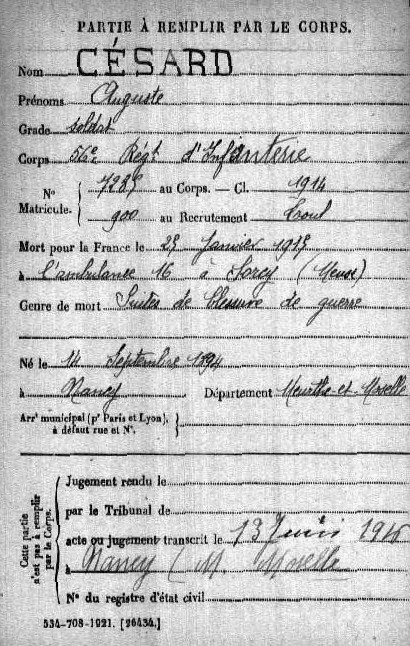 PARTIE À REMPLIR PAR LE CORPS.
Nom CÉSARD
Prénoms Auguste
Grade soldat
Corps 56e Régt d'Infanterie
N° Matricule. 7235 au Corps. — Cl. 1914
900 au Recrutement Toul
Mort pour la France le 25 Janvier 1915
à l'ambulance 16 à Sorcy (Meuse)
Genre de mort Suites de blessure de guerre
Né le 14 Septembre 1894
à Nancy Département Meurthe-et-Moselle
Arrt municipal (pr Paris et Lyon),
à défaut rue et N°.
Cette partie n'est pas à remplir par le Corps.
Jugement rendu le
par le Tribunal de
acte ou jugement transcrit le 13 Juin 1916
à Nancy (M Moselle
N° du registre d'état civil
534-708-1921. [26434.]